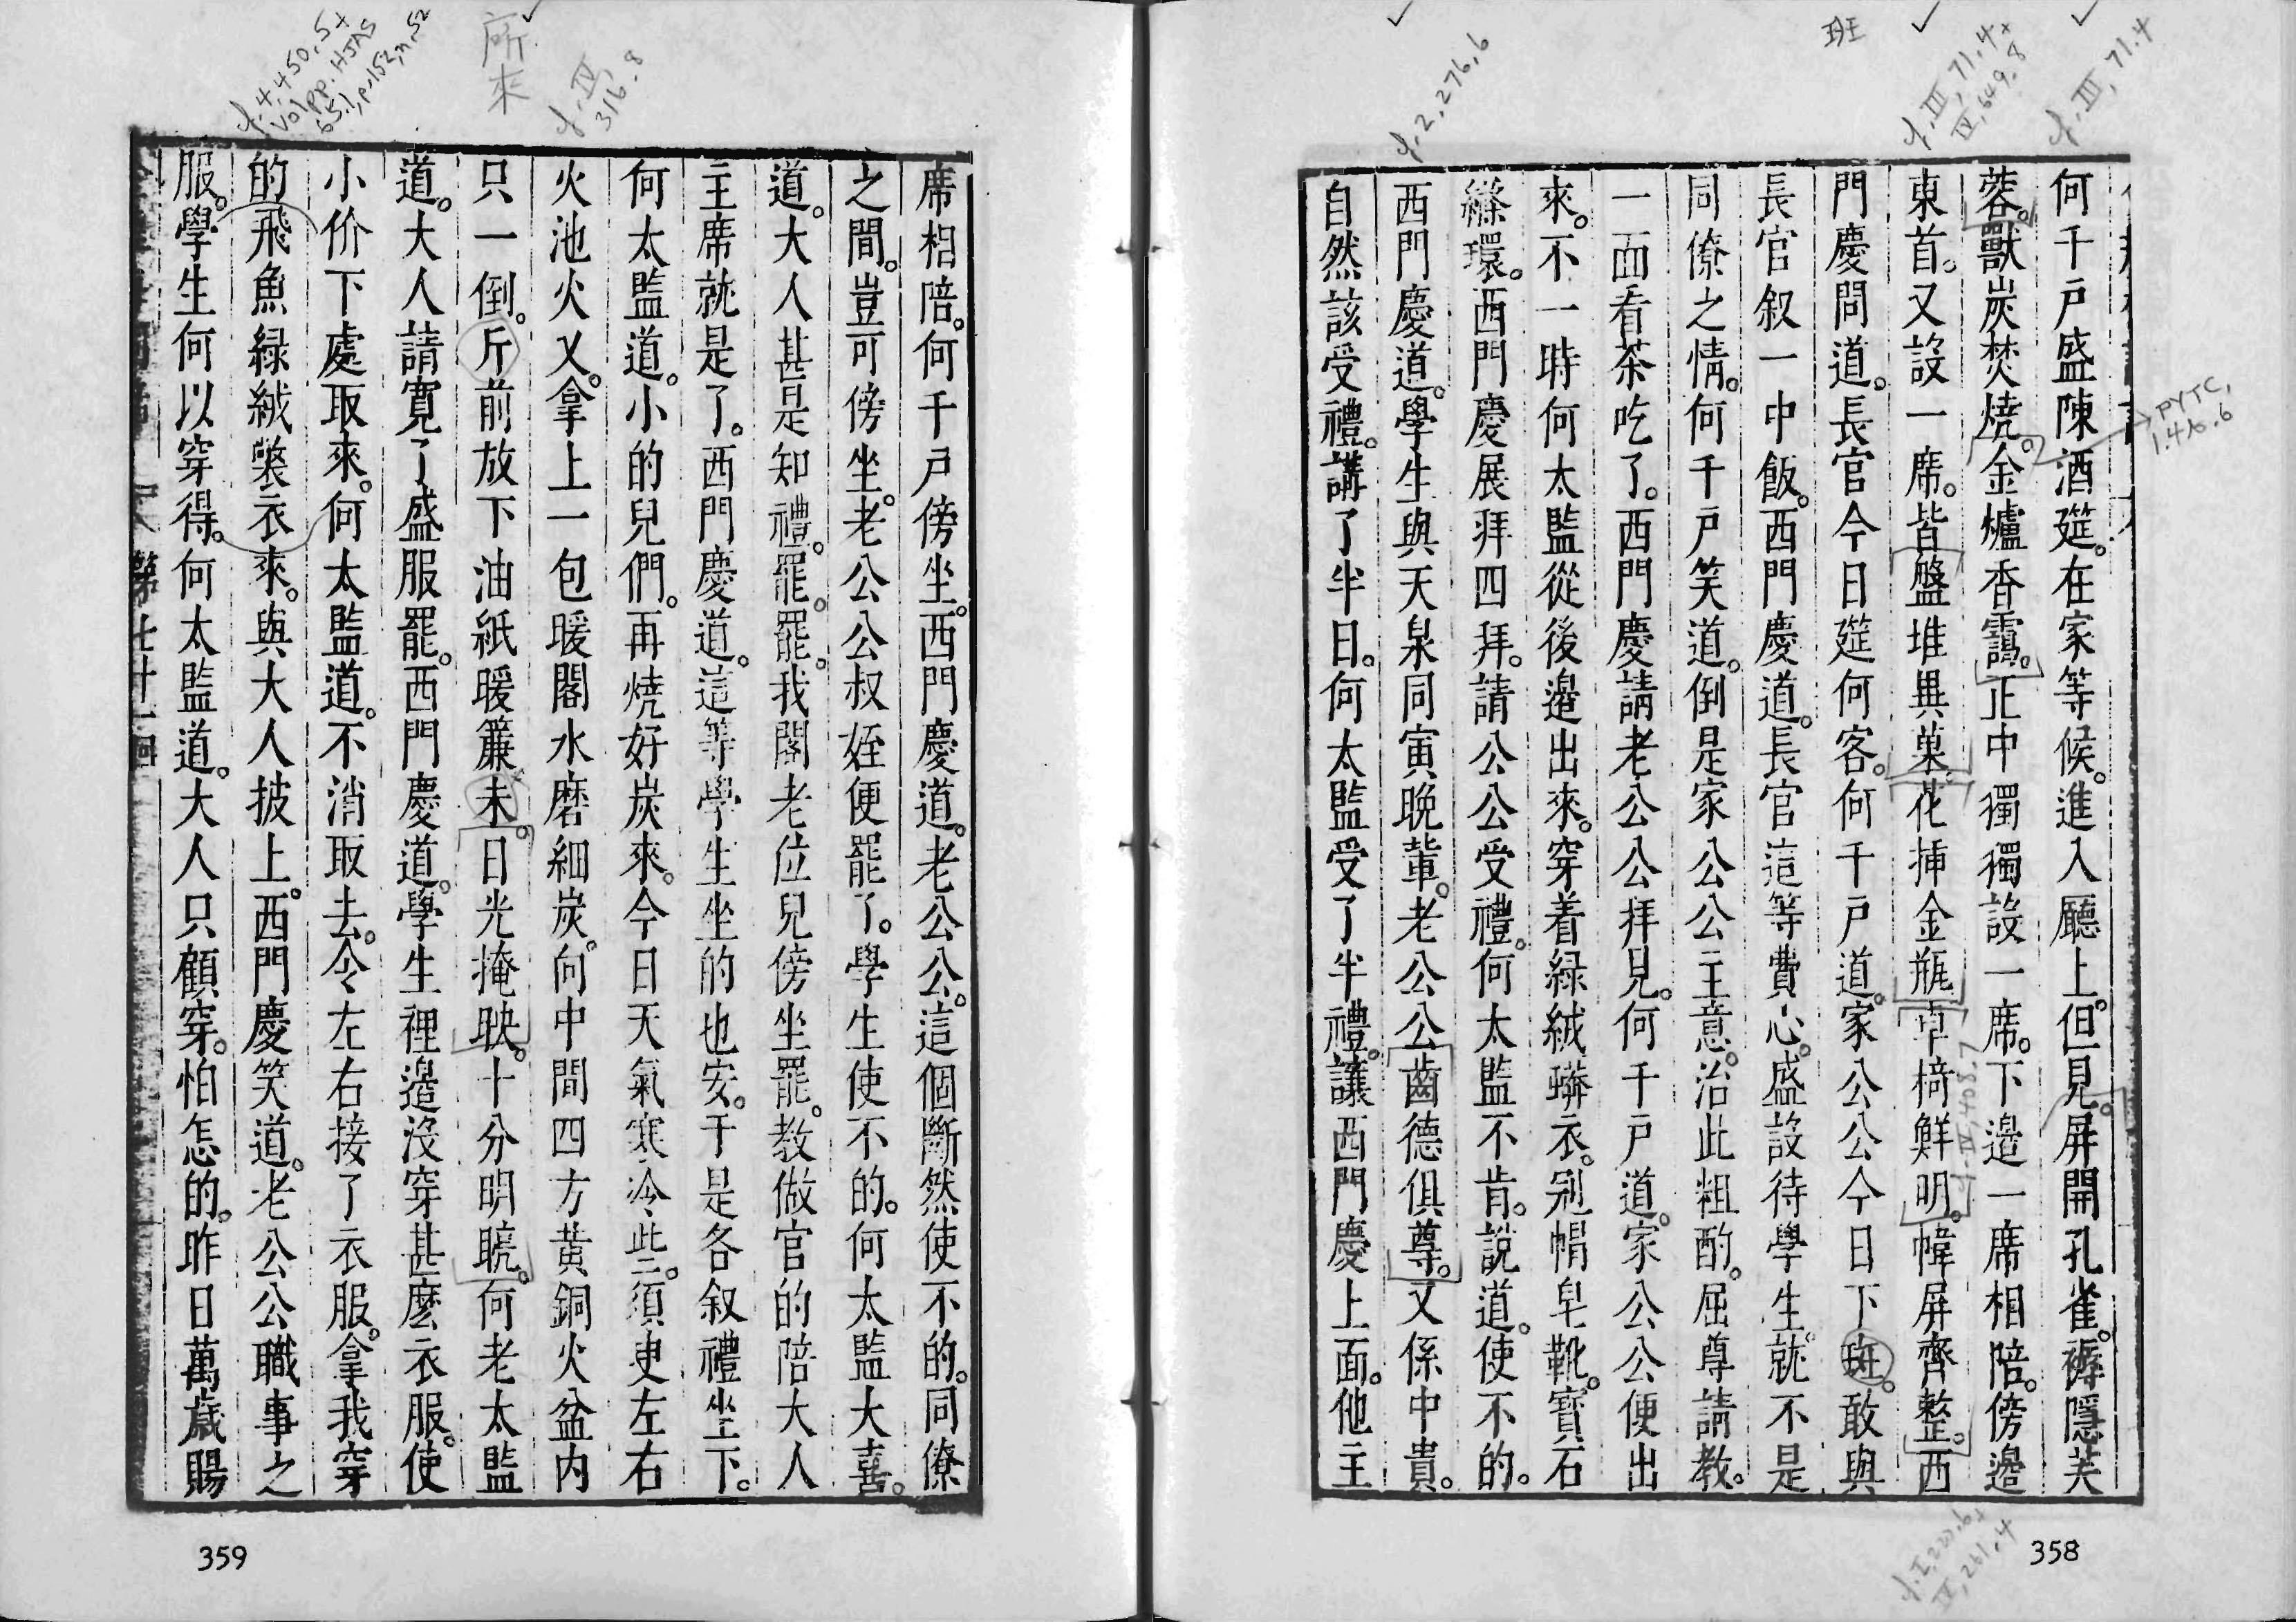 何千戶盛陳酒筵。在家等候。進入廳上。但見。屏開孔雀。褥隱芙
蓉。獸炭焚燒。金爐香靄。正中獨獨設一席。下邊一席相陪。傍邊
東首。又設一席。皆盤堆異菓。花揷金瓶。卓椅鮮明。幃屏齊整。西
門慶問道。長官今日筵何客。何千戶道。家公公今日下班。敢與
長官叙一中飯。西門慶道。長官這等費心。盛設待學生。就不是
同僚之情。何千戶笑道。倒是家公公主意。治此粗酌。屈尊請教。
一面看茶吃了。西門慶請老公公拜見。何千戶道。家公公便出
來。不一時何太監從後邊出來。穿着緑絨蟒衣。冠帽皁靴。寳石
縧環。西門慶展拜四拜。請公公受禮。何太監不肯。說道。使不的。
西門慶道。學生與天泉同寅晚輩。老公公齒德俱尊。又係中貴。
自然該受禮。講了半日。何太監受了半禮。讓西門慶上面。他主
358
席相陪。何千戶傍坐。西門慶道。老公公。這個斷然使不的。同僚
之間。豈可傍坐。老公公叔姪便罷了。學生使不的。何太監大喜。
道。大人甚是知禮。罷。罷。我閣老位兒傍坐罷。教做官的陪大人
主席就是了。西門慶道。這等學生坐的也安。于是各叙禮坐下。
何太監道。小的兒們。再燒好炭來。今日天氣寒冷些。須臾左右
火池火叉。拿上一包暖閣水磨細炭。向中間四方黃銅火盆内
只一倒。斤前放下油紙暖簾未。日光掩映。十分明䀨。何老太監
道。大人請寬了盛服罷。西門慶道。學生裡邉沒穿甚麽衣服。使
小价下處取來。何太監道。不消取去。令左右接了衣服。拿我穿
的飛魚緑絨氅衣來。與大人披上。西門慶笑道。老公公職事之
服。學生何以穿得。何太監道。大人只顧穿。怕怎的。昨日萬歲賜
第七十一回
359
班
所
來
cf. III, 71.4
cf. III, 71.4+
IV, 649.8
cf. 2, 276.6
PYTC,
1.416.6
cf. IV,
316.8
cf. 4, 450.5+
Volpp. HJAS
65.1, p.152, n.52
II, 261.4